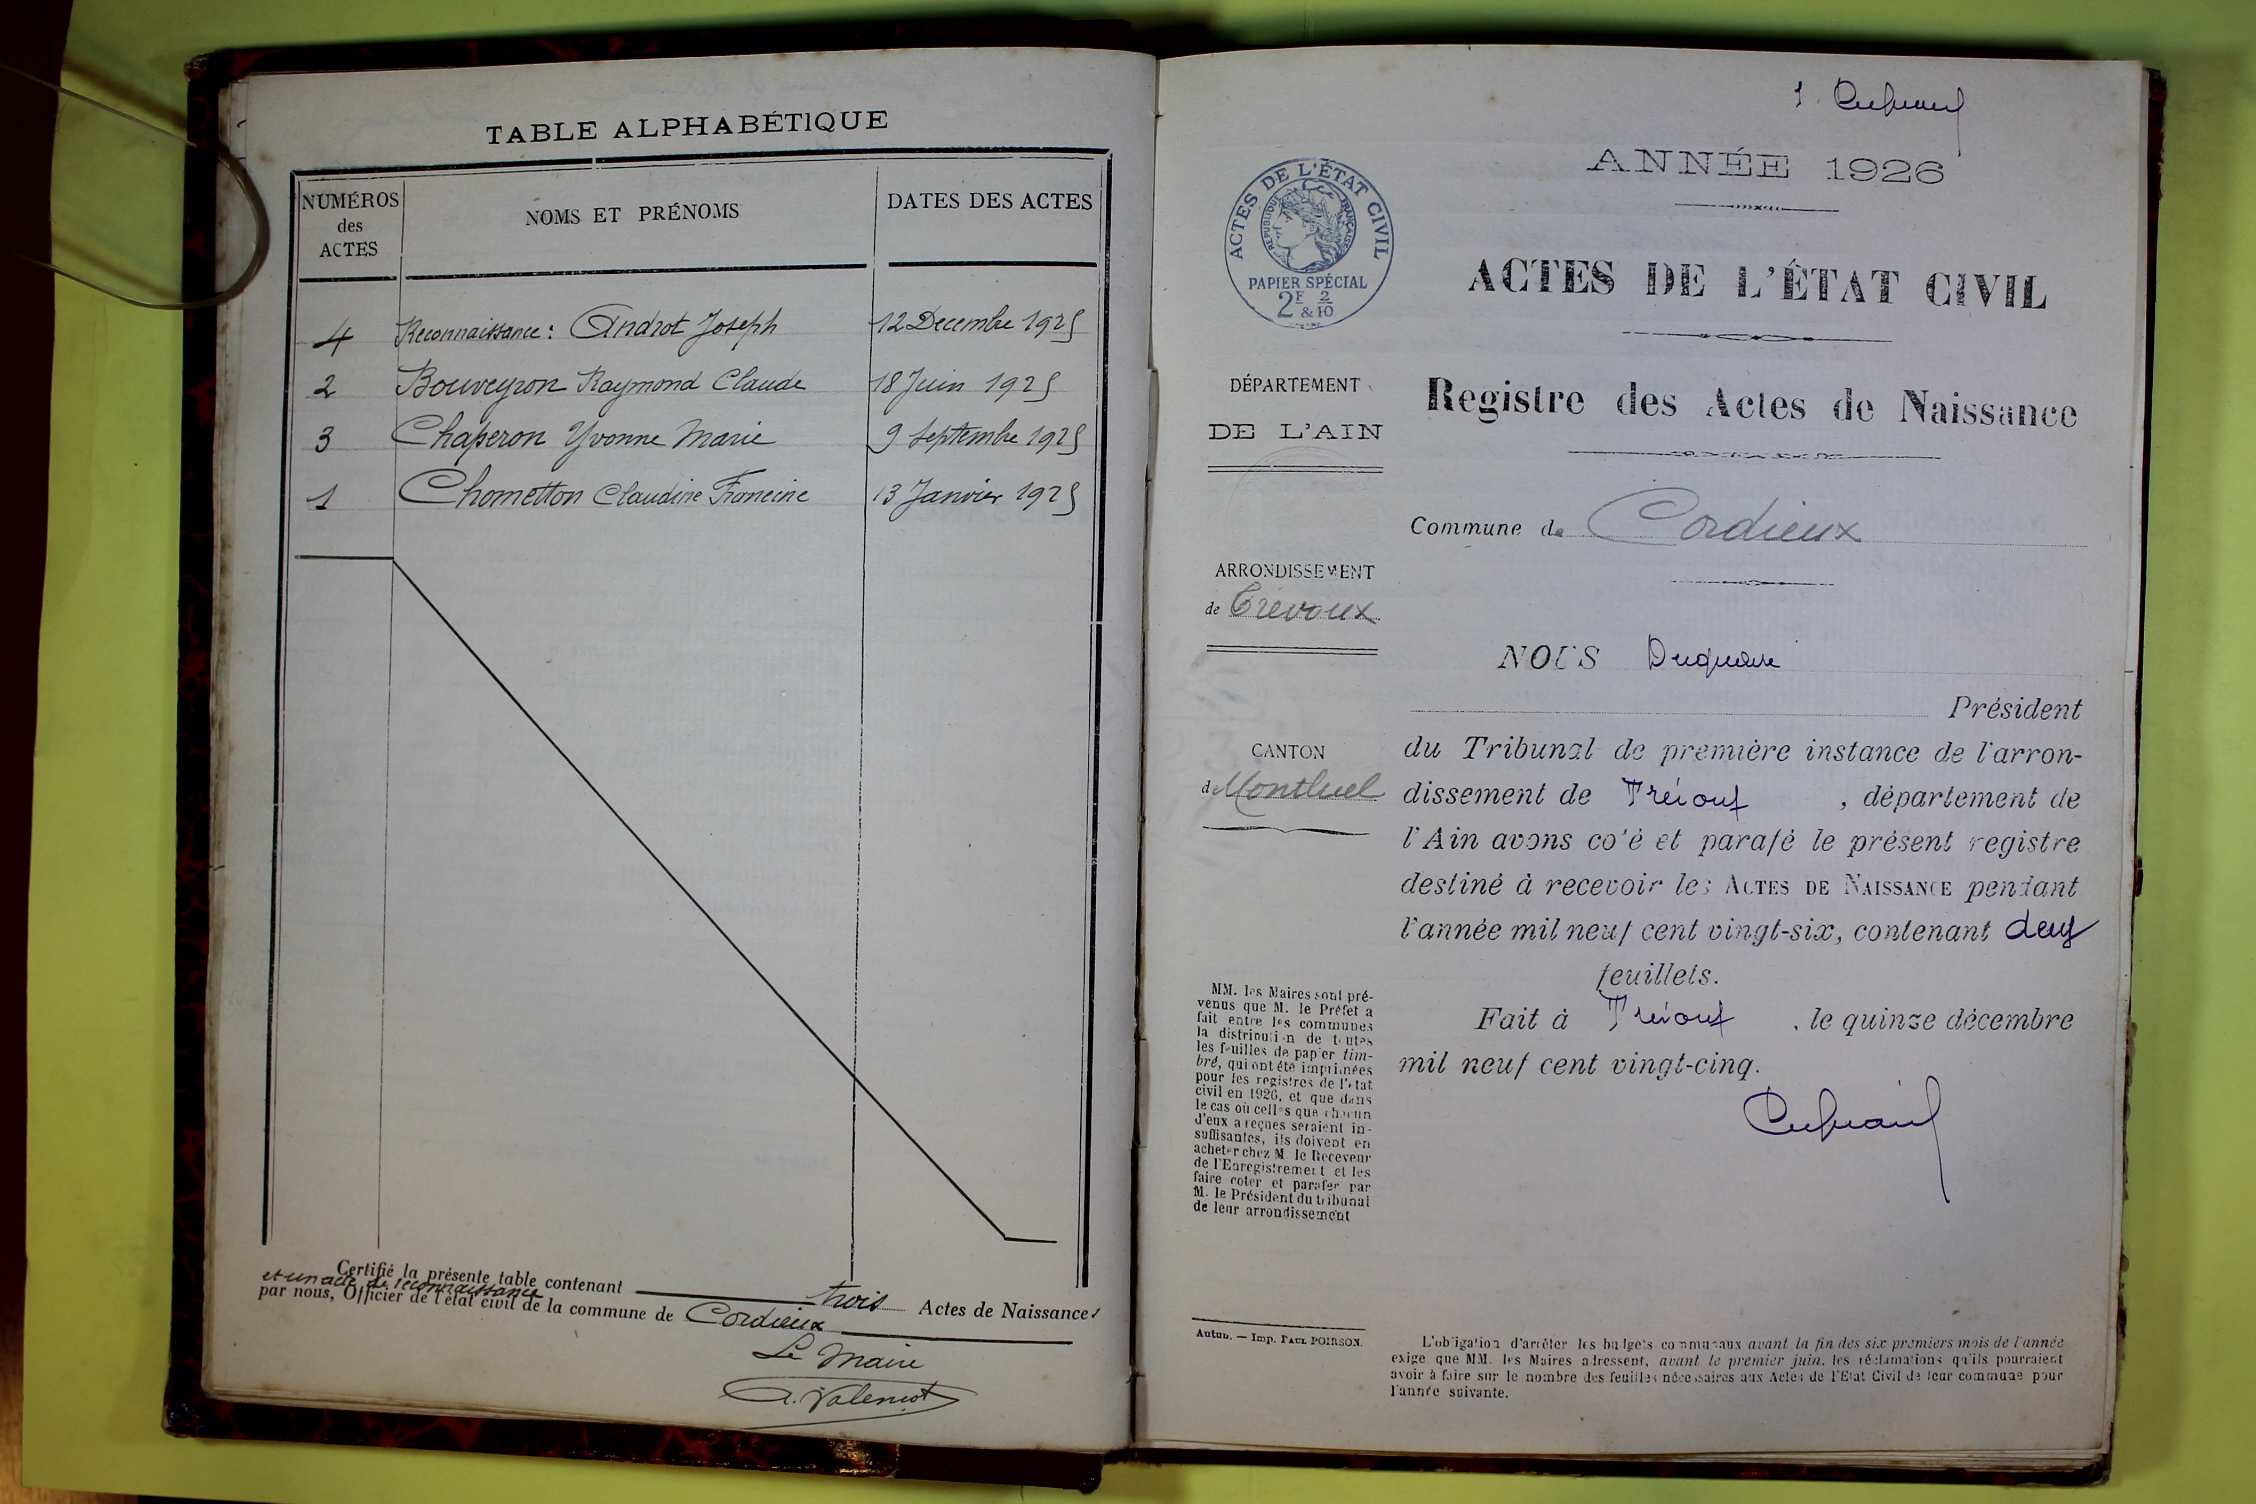 TABLE ALPHABÉTIQUE
NUMÉROS
des
ACTES
NOMS ET PRÉNOMS
DATES DES ACTES
4 Reconnaissance : Androt Joseph 12 Decembre 1925
2 Bouveyron Raymond Claude 18 Juin 1925
3 Chaperon Yvonne Marie 9 Septembre 1925
1 Chometton Claudine Francine 13 Janvier 1925
Certifié la présente table contenant trois Actes de Naissances
et un acte de reconnaissance
par nous, Officier de l'état civil de la commune de Cordieux
Le Maire
1.
ANNÉE 1926
ACTES DE L'ÉTAT CIVIL
RÉPUBLIQUE FRANÇAISE
PAPIER SPÉCIAL
2F & 2/10
ACTES DE L'ÉTAT CIVIL
Registre des Actes de Naissance
Commune de Cordieux
DÉPARTEMENT
DE L'AIN
ARRONDISSEMENT
de Trévoux
CANTON
de Montluel
NOUS
Président
du Tribunal de première instance de l'arron-
dissement de Trévoux, département de
l'Ain avons coté et parafé le présent registre
destiné à recevoir les ACTES DE NAISSANCE pendant
l'année mil neuf cent vingt-six, contenant deux
feuillets.
Fait à Trévoux, le quinze décembre
mil neuf cent vingt-cinq.
MM. les Maires sont pré-
venus que M. le Préfet a
fait entre les communes
la distribution de toutes
les feuilles de papier tim-
bré, qui ont été imprimées
pour les registres de l'état
civil en 1926, et que dans
le cas où celles que chacun
d'eux a reçues seraient in-
suffisantes, ils doivent en
acheter chez M. le Receveur
de l'Enregistrement et les
faire coter et parafer par
M. le Président du tribunal
de leur arrondissement
Autun. — Imp. PAUL POIRSON.
L'obligation d'arrêter les budgets communaux avant la fin des six premiers mois de l'année
exige que MM. les Maires adressent, avant le premier juin, les réclamations qu'ils pourraient
avoir à faire sur le nombre des feuilles nécessaires aux Actes de l'Etat Civil de leur commune pour
l'année suivante.